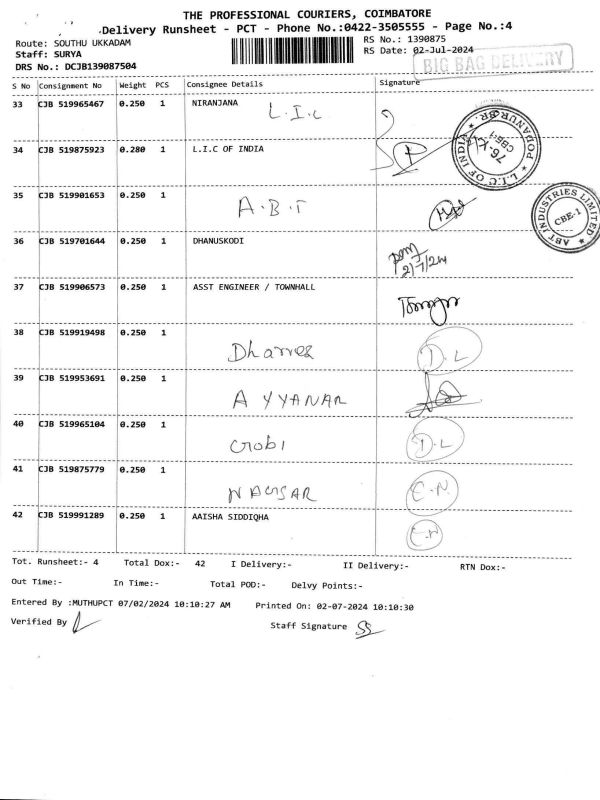 THE PROFESSIONAL COURIERS, COIMBATORE
Delivery Runsheet - PCT - Phone No.:0422-3505555 - Page No.:4
Route: SOUTHU UKKADAM
RS No.: 1390875
Staff: SURYA
RS Date: 02-Jul-2024
DRS No.: DCJB139087504
BIG BAG DELIVERY
S No Consignment No Weight PCS Consignee Details Signature
33 CJB 519965467 0.250 1 NIRANJANA
L.I.C
34 CJB 519875923 0.280 1 L.I.C OF INDIA
L.I.C OF INDIA PODANUR BR. CBE-1
35 CJB 519901653 0.250 1
A.B.T
ABT INDUSTRIES LIMITED CBE-1
36 CJB 519701644 0.250 1 DHANUSKODI
2/7/24
37 CJB 519906573 0.250 1 ASST ENGINEER / TOWNHALL
38 CJB 519919498 0.250 1
D.L
39 CJB 519953691 0.250 1
AYYANAR
40 CJB 519965104 0.250 1
Gobi D.L
41 CJB 519875779 0.250 1
C.N.
42 CJB 519991289 0.250 1 AAISHA SIDDIQHA
C.N
Tot. Runsheet:- 4 Total Dox:- 42 I Delivery:- II Delivery:- RTN Dox:-
Out Time:- In Time:- Total POD:- Delvy Points:-
Entered By :MUTHUPCT 07/02/2024 10:10:27 AM Printed On: 02-07-2024 10:10:30
Verified By
Staff Signature SS